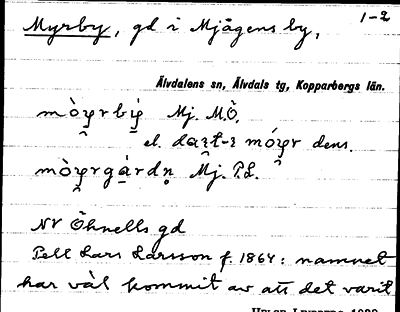 Myrby, gd i Mjågens by,
1-2
Älvdalens sn, Älvdals tg, Kopparbergs län.
Mj. M.Ö.
el. dens.
Mj. P.L.
NV Öhnells gd
Pell Lars Larsson f. 1864: namnet
har väl kommit av att det varit